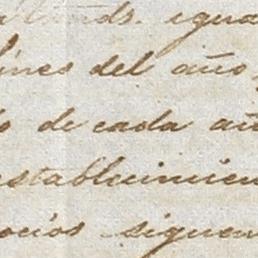 igua
fines del año,
o de cada añ
establecimien
ocios siguen